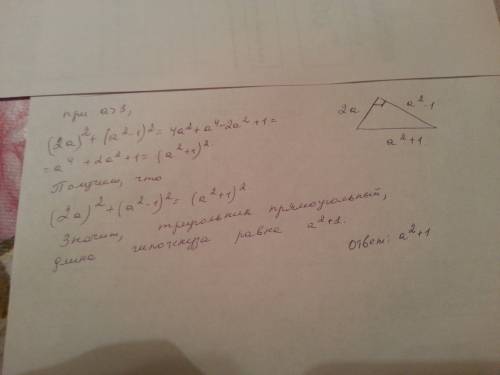 при a>3,
(2a)² + (a²-1)² = 4a² + a⁴ - 2a² + 1 =
= a⁴ + 2a² + 1 = (a²+1)²
Получим, что
(2a)² + (a²-1)² = (a²+1)²
Значит, треугольник прямоугольный,
длина гипотенуза равна a²+1.
Ответ: a²+1
2a
a²-1
a²+1